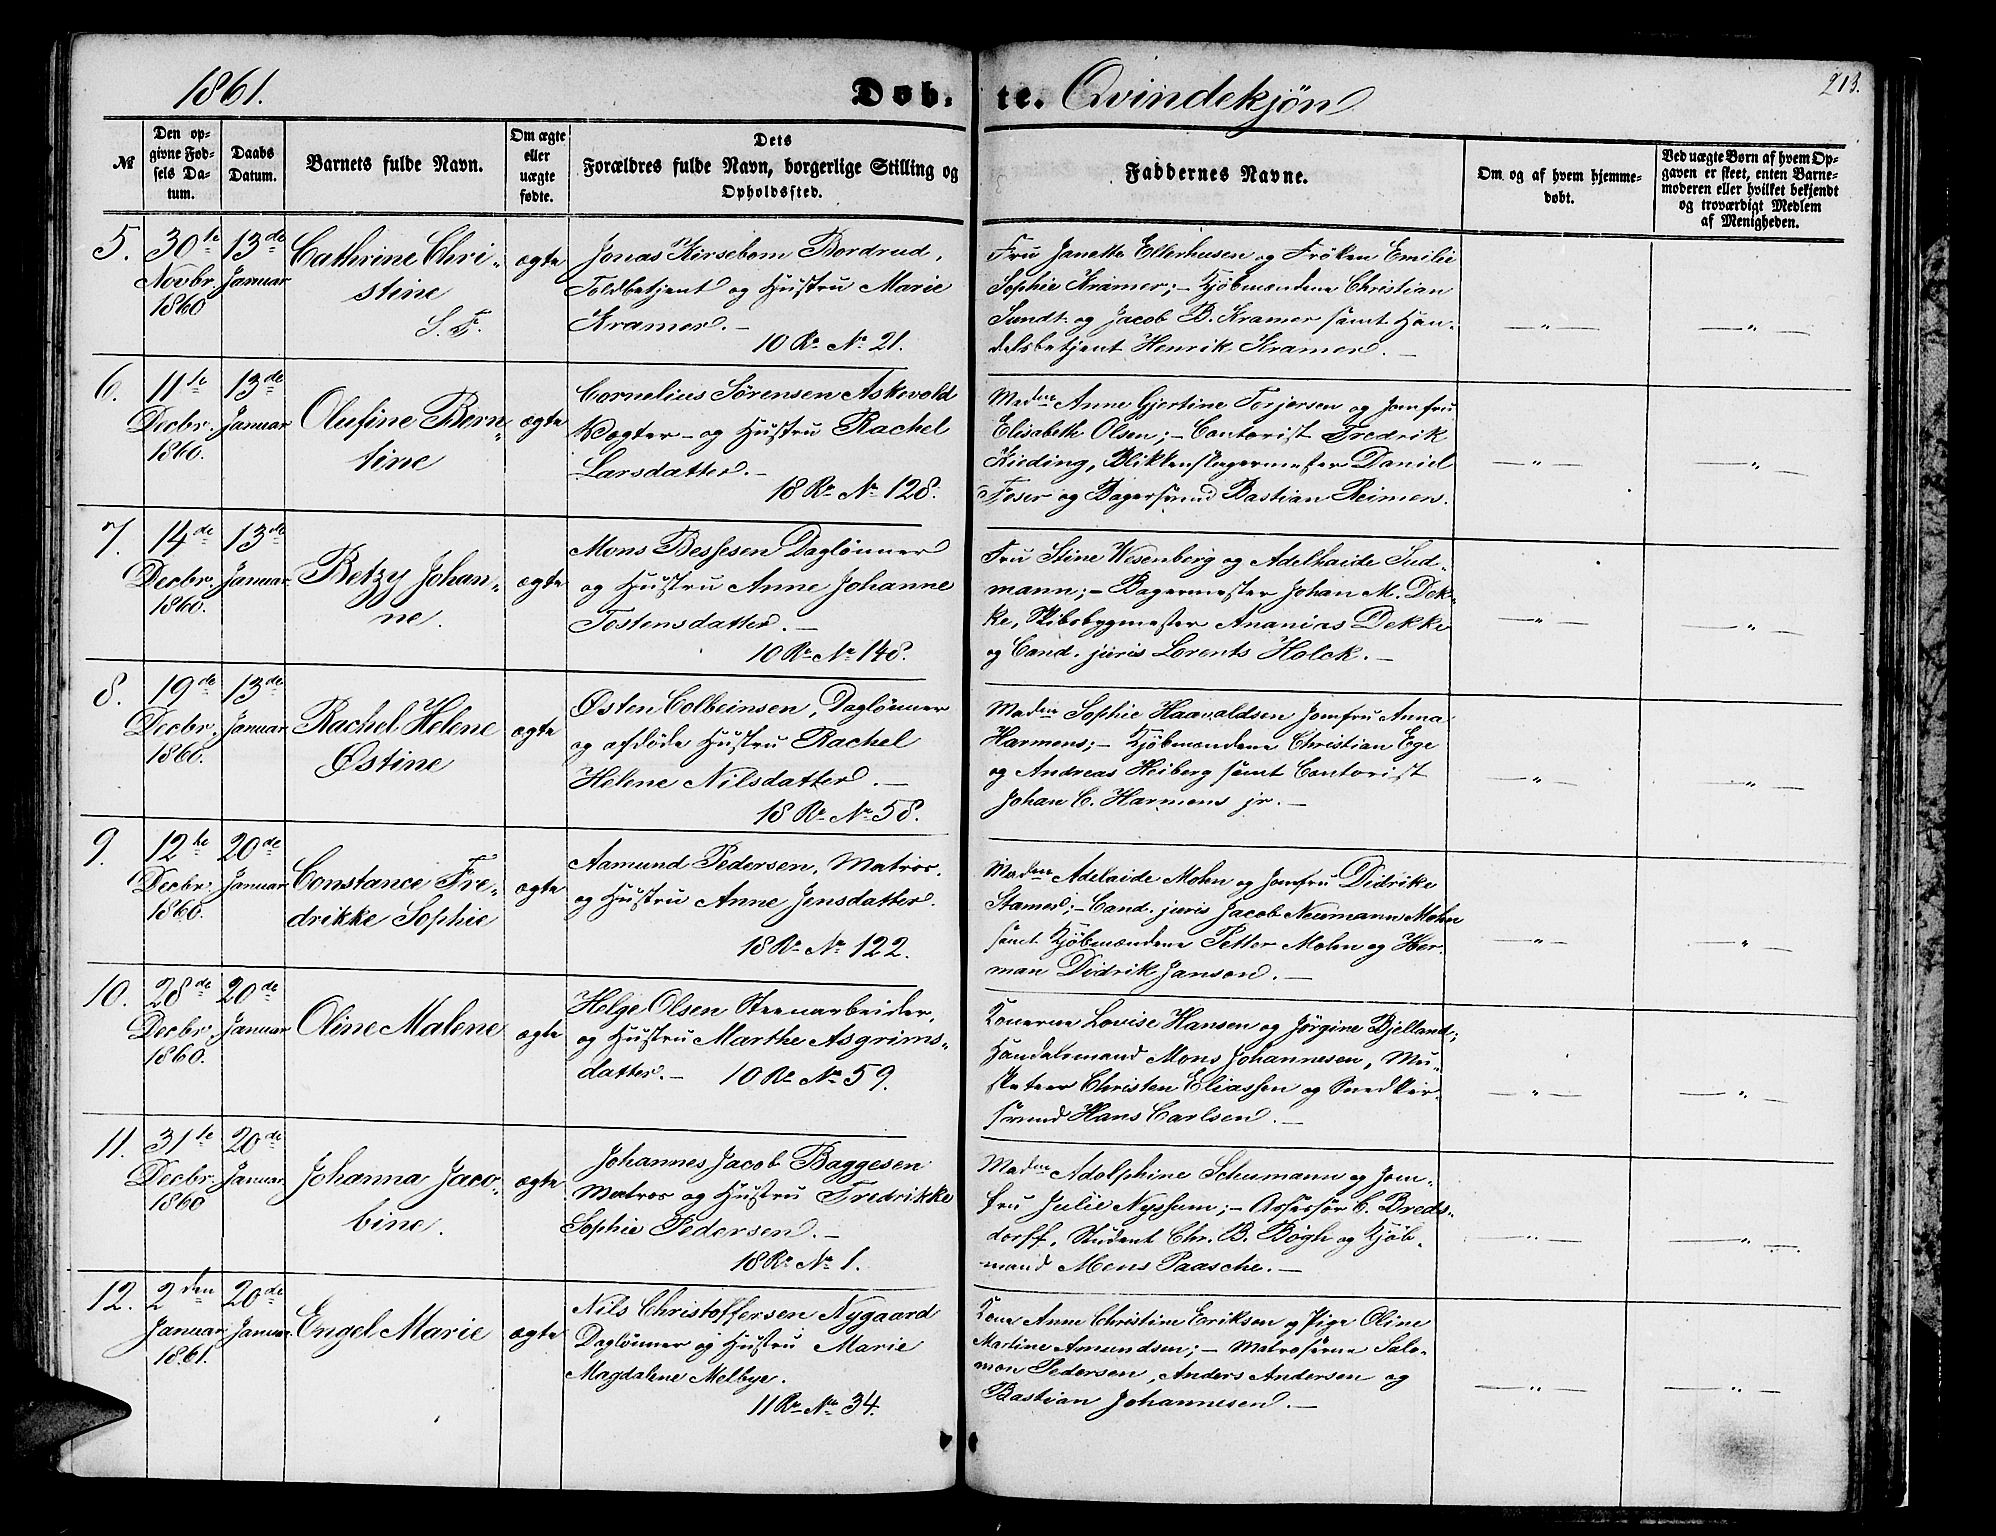 1861.
Døb-
te.
Qvindekjøn
213.
№
Den op-
givne Fød-
sels Da-
tum.
Daabs
Datum.
Barnets fulde Navn.
Om ægte
eller
uægte
fødte.
Dets
Forældres fulde Navn, borgerlige Stilling og
Opholdssted.
Faddernes Navne.
Om og af hvem hjemme-
døbt.
Ved uægte Børn af hvem Op-
gaven er skeet, enten Barne-
moderen eller hvilket bekjendt
og troværdigt Medlem
af Menigheden.
5.
30te
Novbr.
1860
13de
Januar
Cathrine Chri-
stine
S. F.
ægte
Jonas Kirsebom Bordrud,
Toldbetjent og Hustru Marie
Kramer. —
10 R. No 21.
Fru Janette Ellerhusen og Frøken Emilie
Sophie Kramer; — Kjøbmændene Christian
Sundt og Jacob B. Kramer samt Han-
delsbetjent Henrik Kramer. —
— " —
— " —
6.
11te
Decbr.
1860.
13de
Januar
Olufine Bern-
tine
ægte
Cornelius Sørensen Askevold
Vægter — og Hustru Rachel
Larsdatter. —
18 R. No 128.
Madme Anne Gjertine Torjersen og Jomfru
Elisabeth Olsen; — Contorist Fredrik
Kieding, Blikkenslagermester Daniel
Foser og Bagersvend Bastian Reimers.
— " —
— " —
7.
14de
Decbr.
1860.
13de
Januar.
Betzy Johan-
ne.
ægte
Mons Bessesen Daglønner
og Hustru Anne Johanne
Tostensdatter. —
10 R. No 148.
Fru Stine Wesenberg og Adelhaide Sud-
mann; — Bagermester Johan M. Dek-
ke, Skibsbygmester Ananias Dekke
og Cand. juris Lorents Holck. —
— " —
— " —
8.
19de
Decbr.
1860.
13de
Januar
Rachel Helene
Østine
ægte
Østen Colbeinsen, Daglønner
og afdøde Hustru Rachel
Helene Nilsdatter. —
18 R. No 58.
Madme Sophie Haavaldsen Jomfru Anna
Harmens; — Kjøbmændene Christian Ege
og Andreas Heiberg samt Contorist
Johan C. Harmens jr. —
— " —
— " —
9.
12te
Decbr.
1860.
20de
Januar
Constance Fre-
drikke Sophie
ægte
Aamund Pedersen, Matros.
og Hustru Anne Jensdatter.
18 R. No 122.
Madme Adelaide Mohn og Jomfru Didrike
Stamer; — Cand. juris Jacob Neumann Mohn
samt Kjøbmændene Petter Mohn og Her-
man Didrik Janson. —
— " —
— " —
10.
28de
Decbr.
1860.
20de
Januar
Oline Malene
ægte
Helge Olsen Steenarbeider,
og Hustru Marthe Asgrims-
datter. — 10 R. No 59.
Konerne Lovise Hansen og Jørgine Bjelland;
Handelsmand Mons Johannesen, Mu-
sketeer Christen Eliassen og Snedker-
svend Hans Carlsen. —
— " —
— " —
11.
31te
Decbr.
1860
20de
Januar.
Johanna Jaco-
bine.
ægte
Johannes Jacob Baggesen
Matros og Hustru Fredrikke
Sophie Pedersen. —
18 R. No 1.
Madme Adolphine Schumann og Jom-
fru Julie Nyssum; — Assessor C. Breds-
dorff, Student Chr. B. Bøgh og Kjøb-
mand Mons Paasche. —
— " —
— " —
12.
2den
Januar
1861.
20de
Januar.
Engel Marie
ægte
Nils Christoffersen Nygaard
Daglønner og Hustru Marie
Magdalene Melbye.
11 R. No 34.
Kone Anne Christine Eriksen og Pige Oline
Martine Amundsen; — Matroserne Salo-
mon Pedersen, Anders Andersen og
Bastian Johannesen. —
— " —
— " —